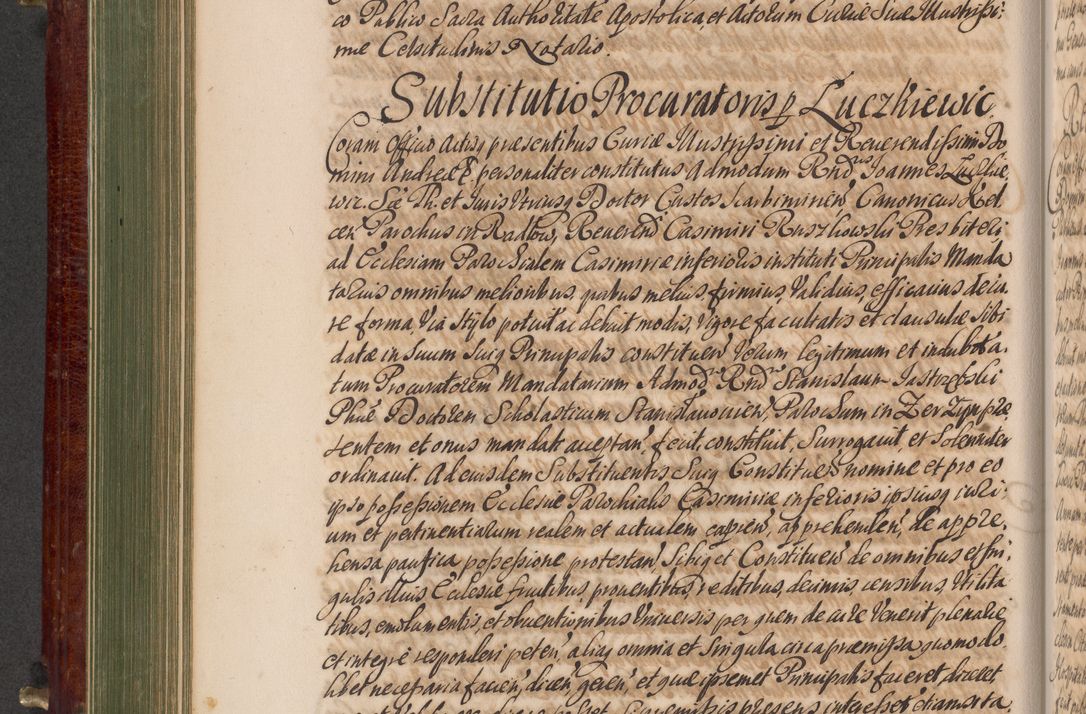 co Publico Sacra Authoritate Apostolica, et Actorum Curiæ Suæ Illustrissi:
mæ Celsitudinis Notario.
Substitutio Procuratoris p Luczkiewic
Coram Officio Actisq præsentibus Curiæ Illustrissimi et Reuerendissimi Do
mini Andreæ E, personaliter constitutus Admodum Rnd. Joannes Luczkie
wic. Sæ Th. et Juris Utriusq Doctor Custos Scarbimirien Canonicus Kel
cen Parochus in Radłow, Reuerend Casimiri Ruszkowski Presbiteri
ad Ecclesiam Parochialem Casimiriæ inferioris instituti Principalis Manda
tarius omnibus melioribus, quibus melius, firmius, Validius, efficacius de iu,
re forma, Via Stylo potuit ac debuit modis, Vigore facultatis et clausulæ Sibi
datæ in Suum Suiq Principalis constituen Verum legitimum et indubita,
tum Procuratorem Mandatarium Admod Rnd Stanislaum Jastrzębski
Phiæ Doctorem Scholasticum Stanislauouien, Parochum in Zerzyn præ
sentem et onus mandati acceptan, fecit, constituit, Surrogauit, et Solenniter
ordinauit. Ad eiusdem Substituentis Suiq Constituen nomine et pro eo
ipso possessionem Ecclesiæ Parochialis Casimiriæ inferioris ipsiusq iuri:
um et pertinentiarum realem et actualem capien, apprehenden, de appre,
hensa pacifica possessione protestan, Sibiq et Constituen de omnibus et sin:
gulis illius Ecclesiæ fructibus, prouentibus, reditibus, decimis, censibus, Utilita
tibus, emolumentis, et obuentionibus Uniuersis per quem de iure Venerit plenarie
et integrè responderi peten, aliaq omnia et Singula circa præmissa quomodo
libet necessaria facien, dicen, geren, et quæ ipsemet Principalis faceret, diceret